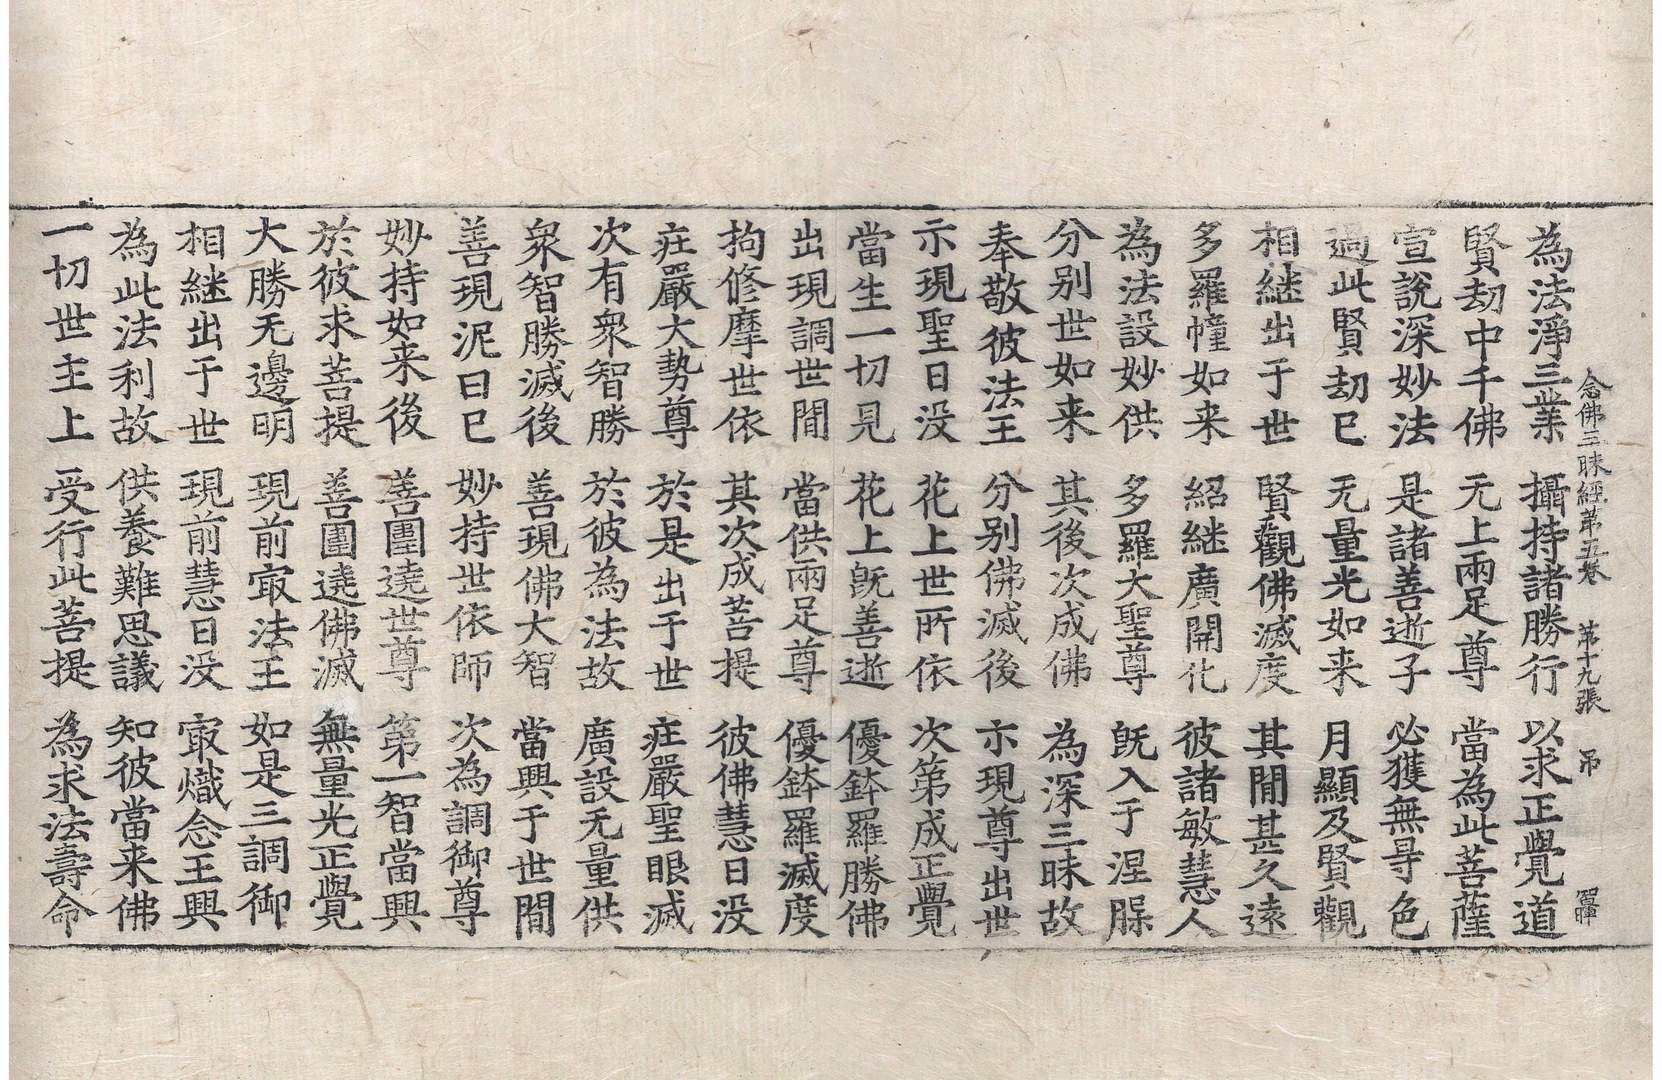 念佛三昧經第五卷 第十九張 吊
為法淨三業 攝持諸勝行 以求正覺道
賢劫中千佛 无上兩足尊 當為此菩薩
宣說深妙法 是諸善逝子 必獲無㝵色
過此賢劫已 无量光如来 月顯及賢觀
相継出于世 賢觀佛滅度 其閒甚久遠
多羅幢如来 紹継廣開化 彼諸敏慧人
為法設妙供 多羅大聖尊 旣入于涅脲
分別世如来 其後次成佛 為深三昧故
奉敬彼法王 分別佛滅後 示現尊出世
示現聖日没 花上世所依 次第成正覺
當生一切見 花上旣善逝 優鉢羅勝佛
出現調世閒 當供兩足尊 優鉢羅滅度
拘修摩世依 其次成菩提 彼佛慧日没
莊嚴大勢尊 於是出于世 莊嚴聖眼滅
次有衆智勝 於彼為法故 廣設无量供
衆智勝滅後 善現佛大智 當興于世閒
善現泥曰已 妙持世依師 次為調御尊
妙持如来後 善圍遶世尊 第一智當興
於彼求菩提 善圍遶佛滅 無量光正覺
大勝无邊明 現前㝡法王 如是三調御
相継出于世 現前慧日没 㝡熾念王興
為此法利故 供養難思議 知彼當来佛
一切世主上 受行此菩提 為求法壽命